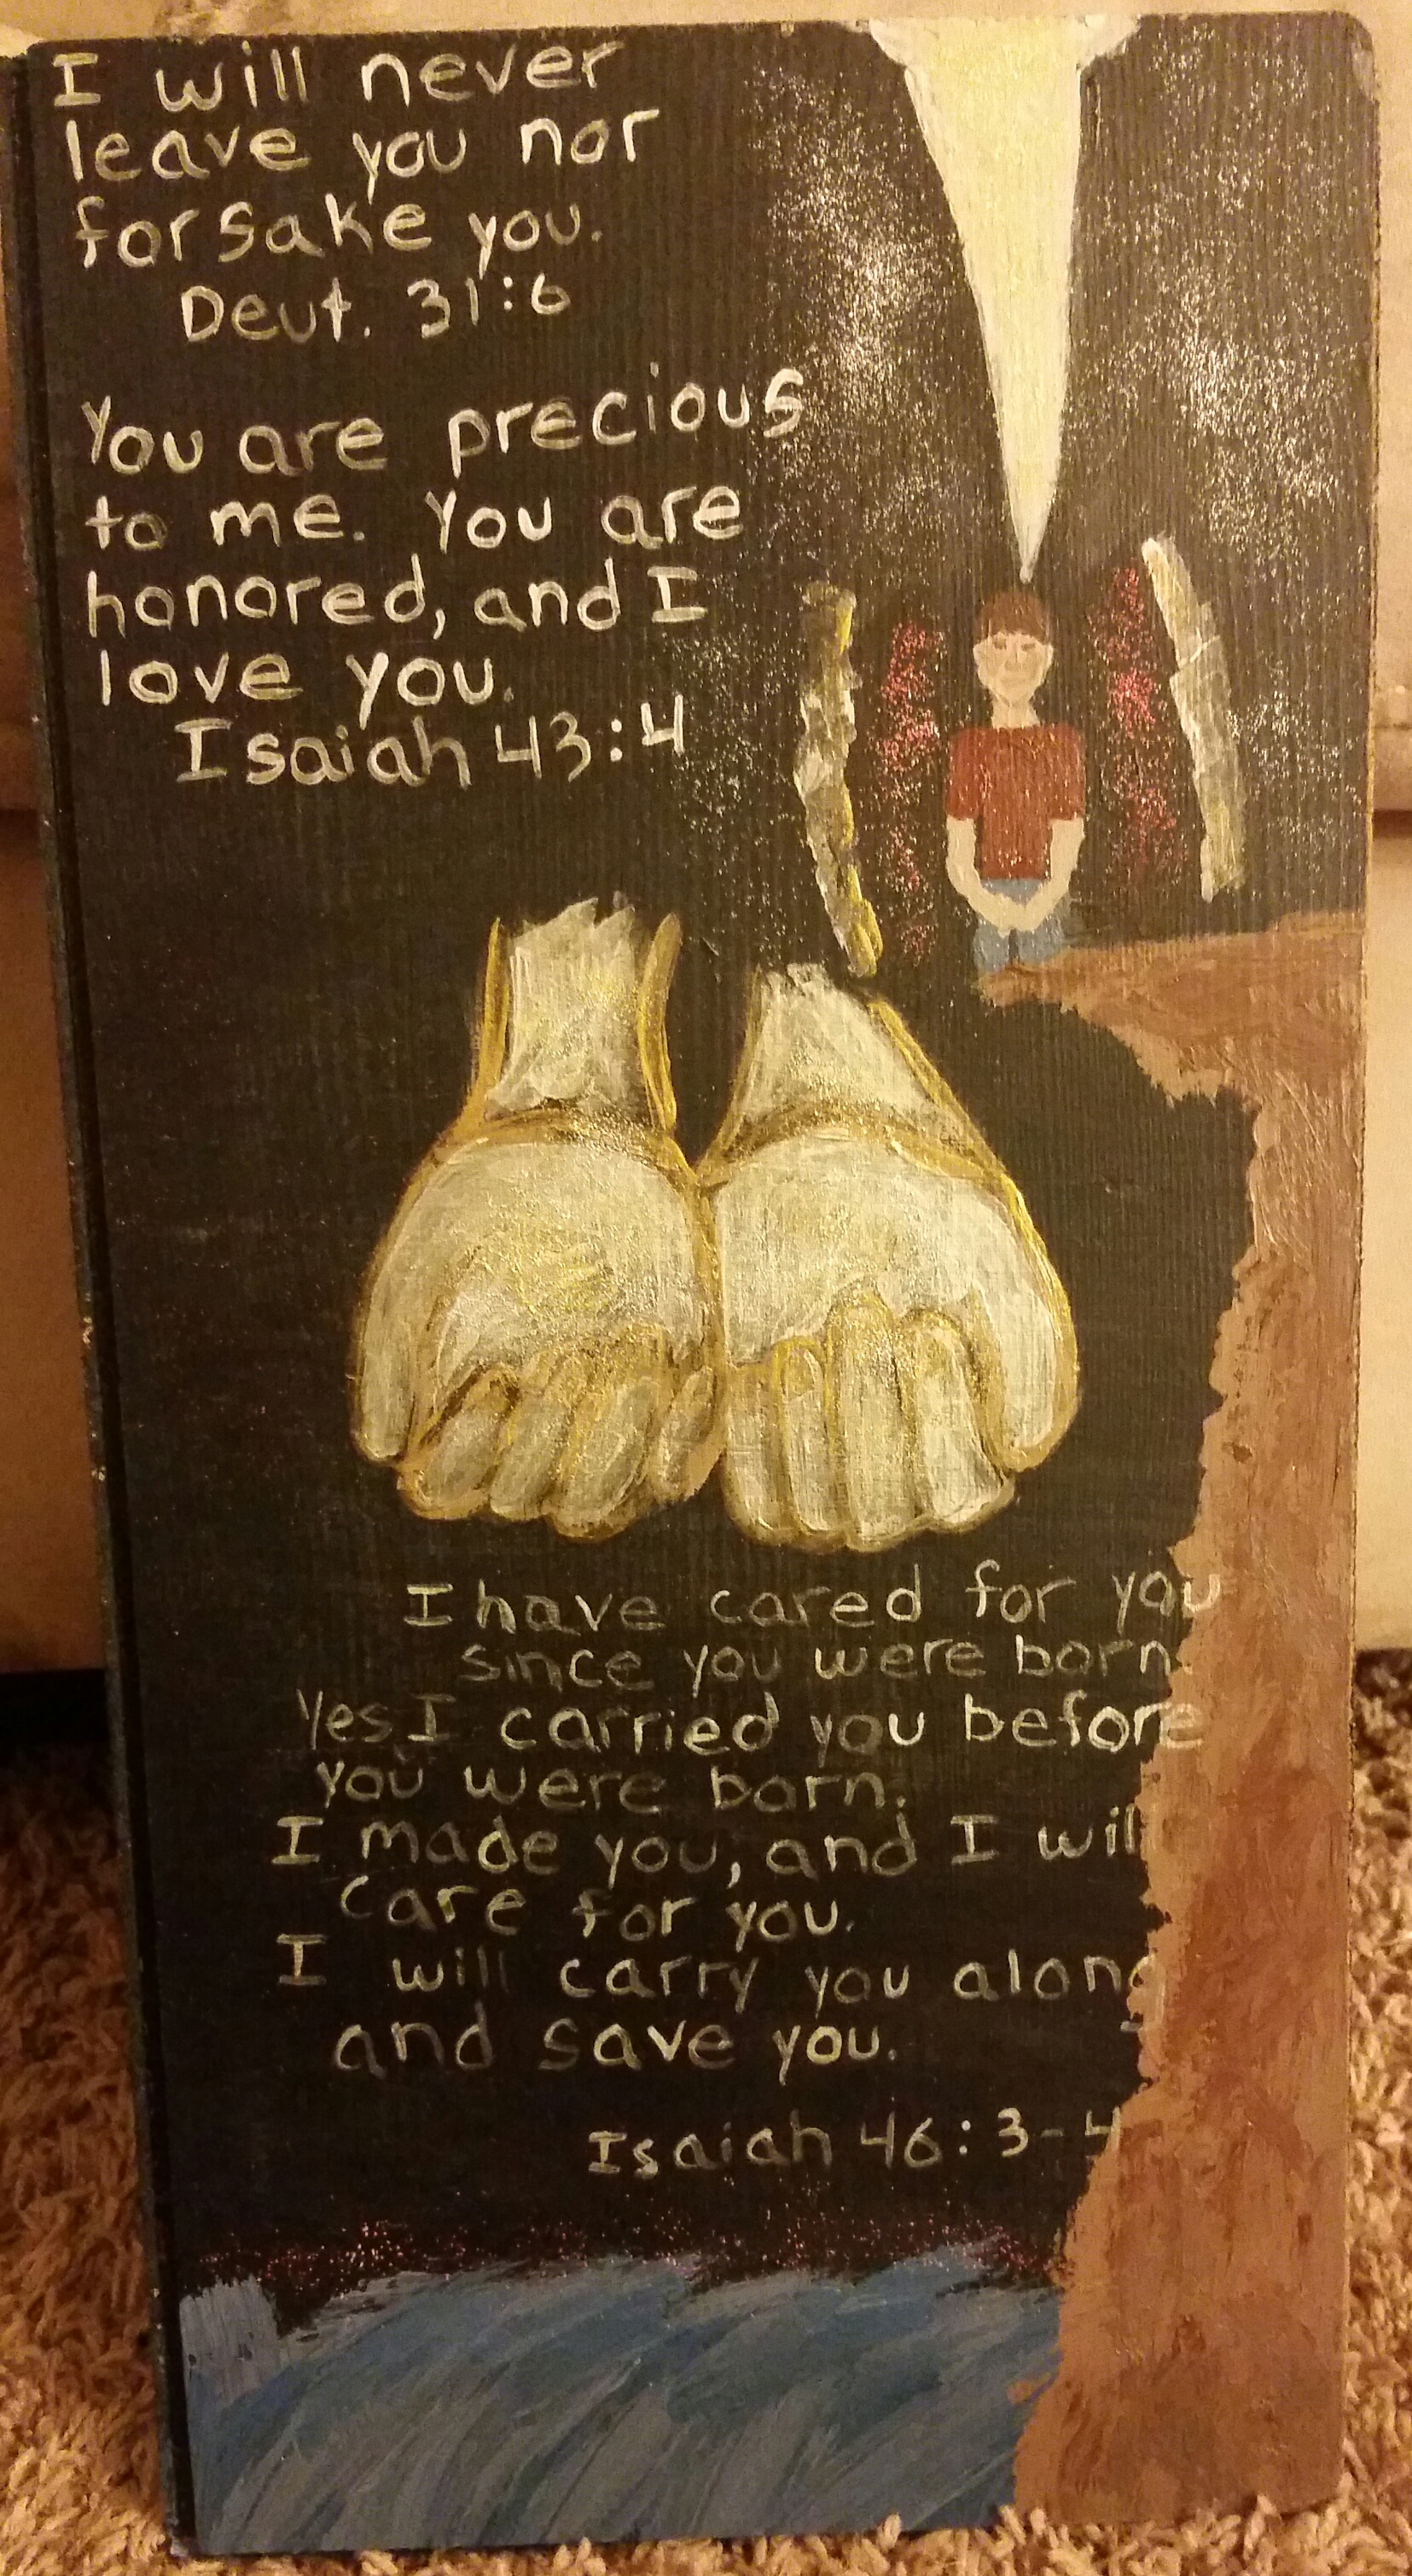 I will never
leave you nor
forsake you.
Deut. 31:6
You are precious
to me. You are
honored, and I
love you.
Isaiah 43:4
I have cared for you
since you were born.
Yes I carried you before
you were born.
I made you, and I will
care for you.
I will carry you along
and save you.
Isaiah 46:3-4